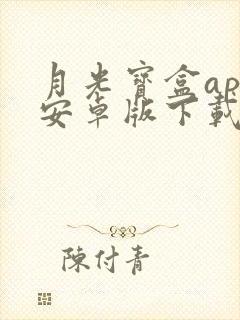 月光寶盒ap
安卓版下載
陳付青